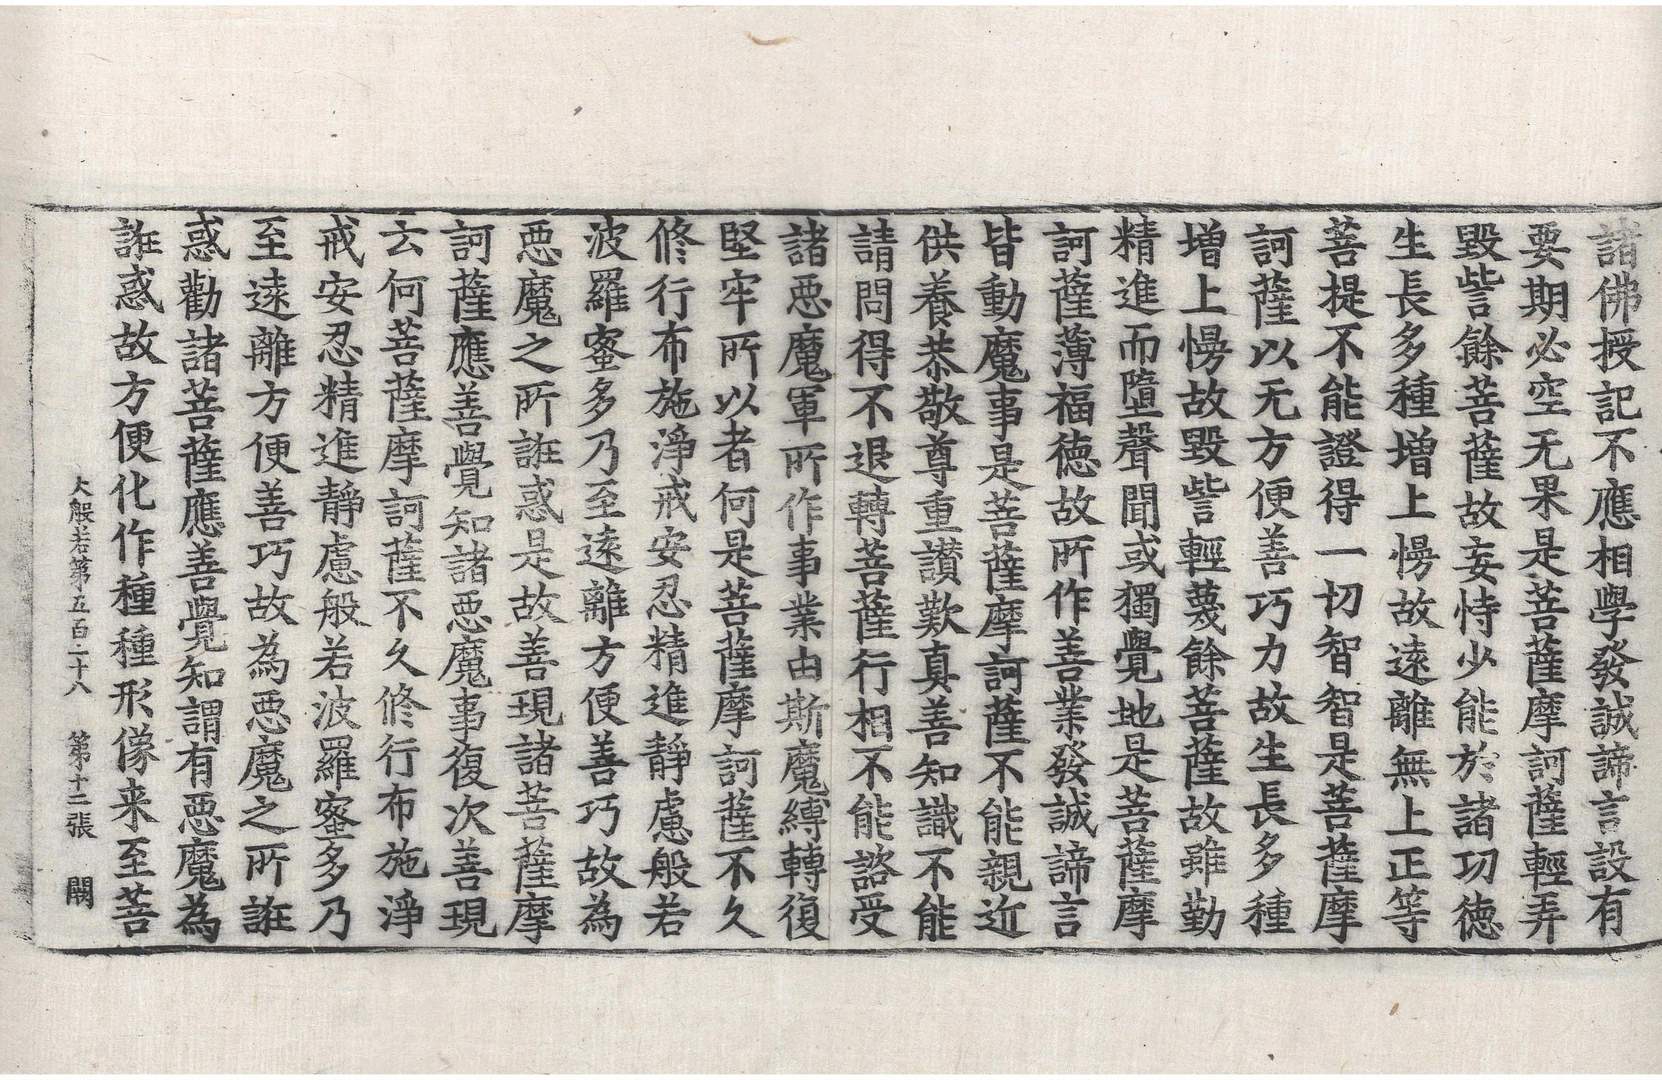 諸佛授記不應相學發誠諦言設有
要期必空无果是菩薩摩訶薩輕弄
毀訾餘菩薩故妄恃少能於諸功徳
生長多種增上慢故遠離無上正等
菩提不能證得一切智智是菩薩摩
訶薩以无方便善巧力故生長多種
增上慢故毀訾輕蔑餘菩薩故雖勤
精進而墮聲聞或獨覺地是菩薩摩
訶薩薄福徳故所作善業發誠諦言
皆動魔事是菩薩摩訶薩不能親近
供養恭敬尊重讃歎真善知識不能
請問得不退轉菩薩行相不能諮受
諸惡魔軍所作事業由斯魔縛轉復
堅牢所以者何是菩薩摩訶薩不久
修行布施淨戒安忍精進靜慮般若
波羅蜜多乃至遠離方便善巧故為
惡魔之所誑惑是故善現諸菩薩摩
訶薩應善覺知諸惡魔事復次善現
云何菩薩摩訶薩不久修行布施淨
戒安忍精進靜慮般若波羅蜜多乃
至遠離方便善巧故為惡魔之所誑
惑勸諸菩薩應善覺知謂有惡魔為
誑惑故方便化作種種形像来至菩
大般若第五百二十八　第十二張　闕